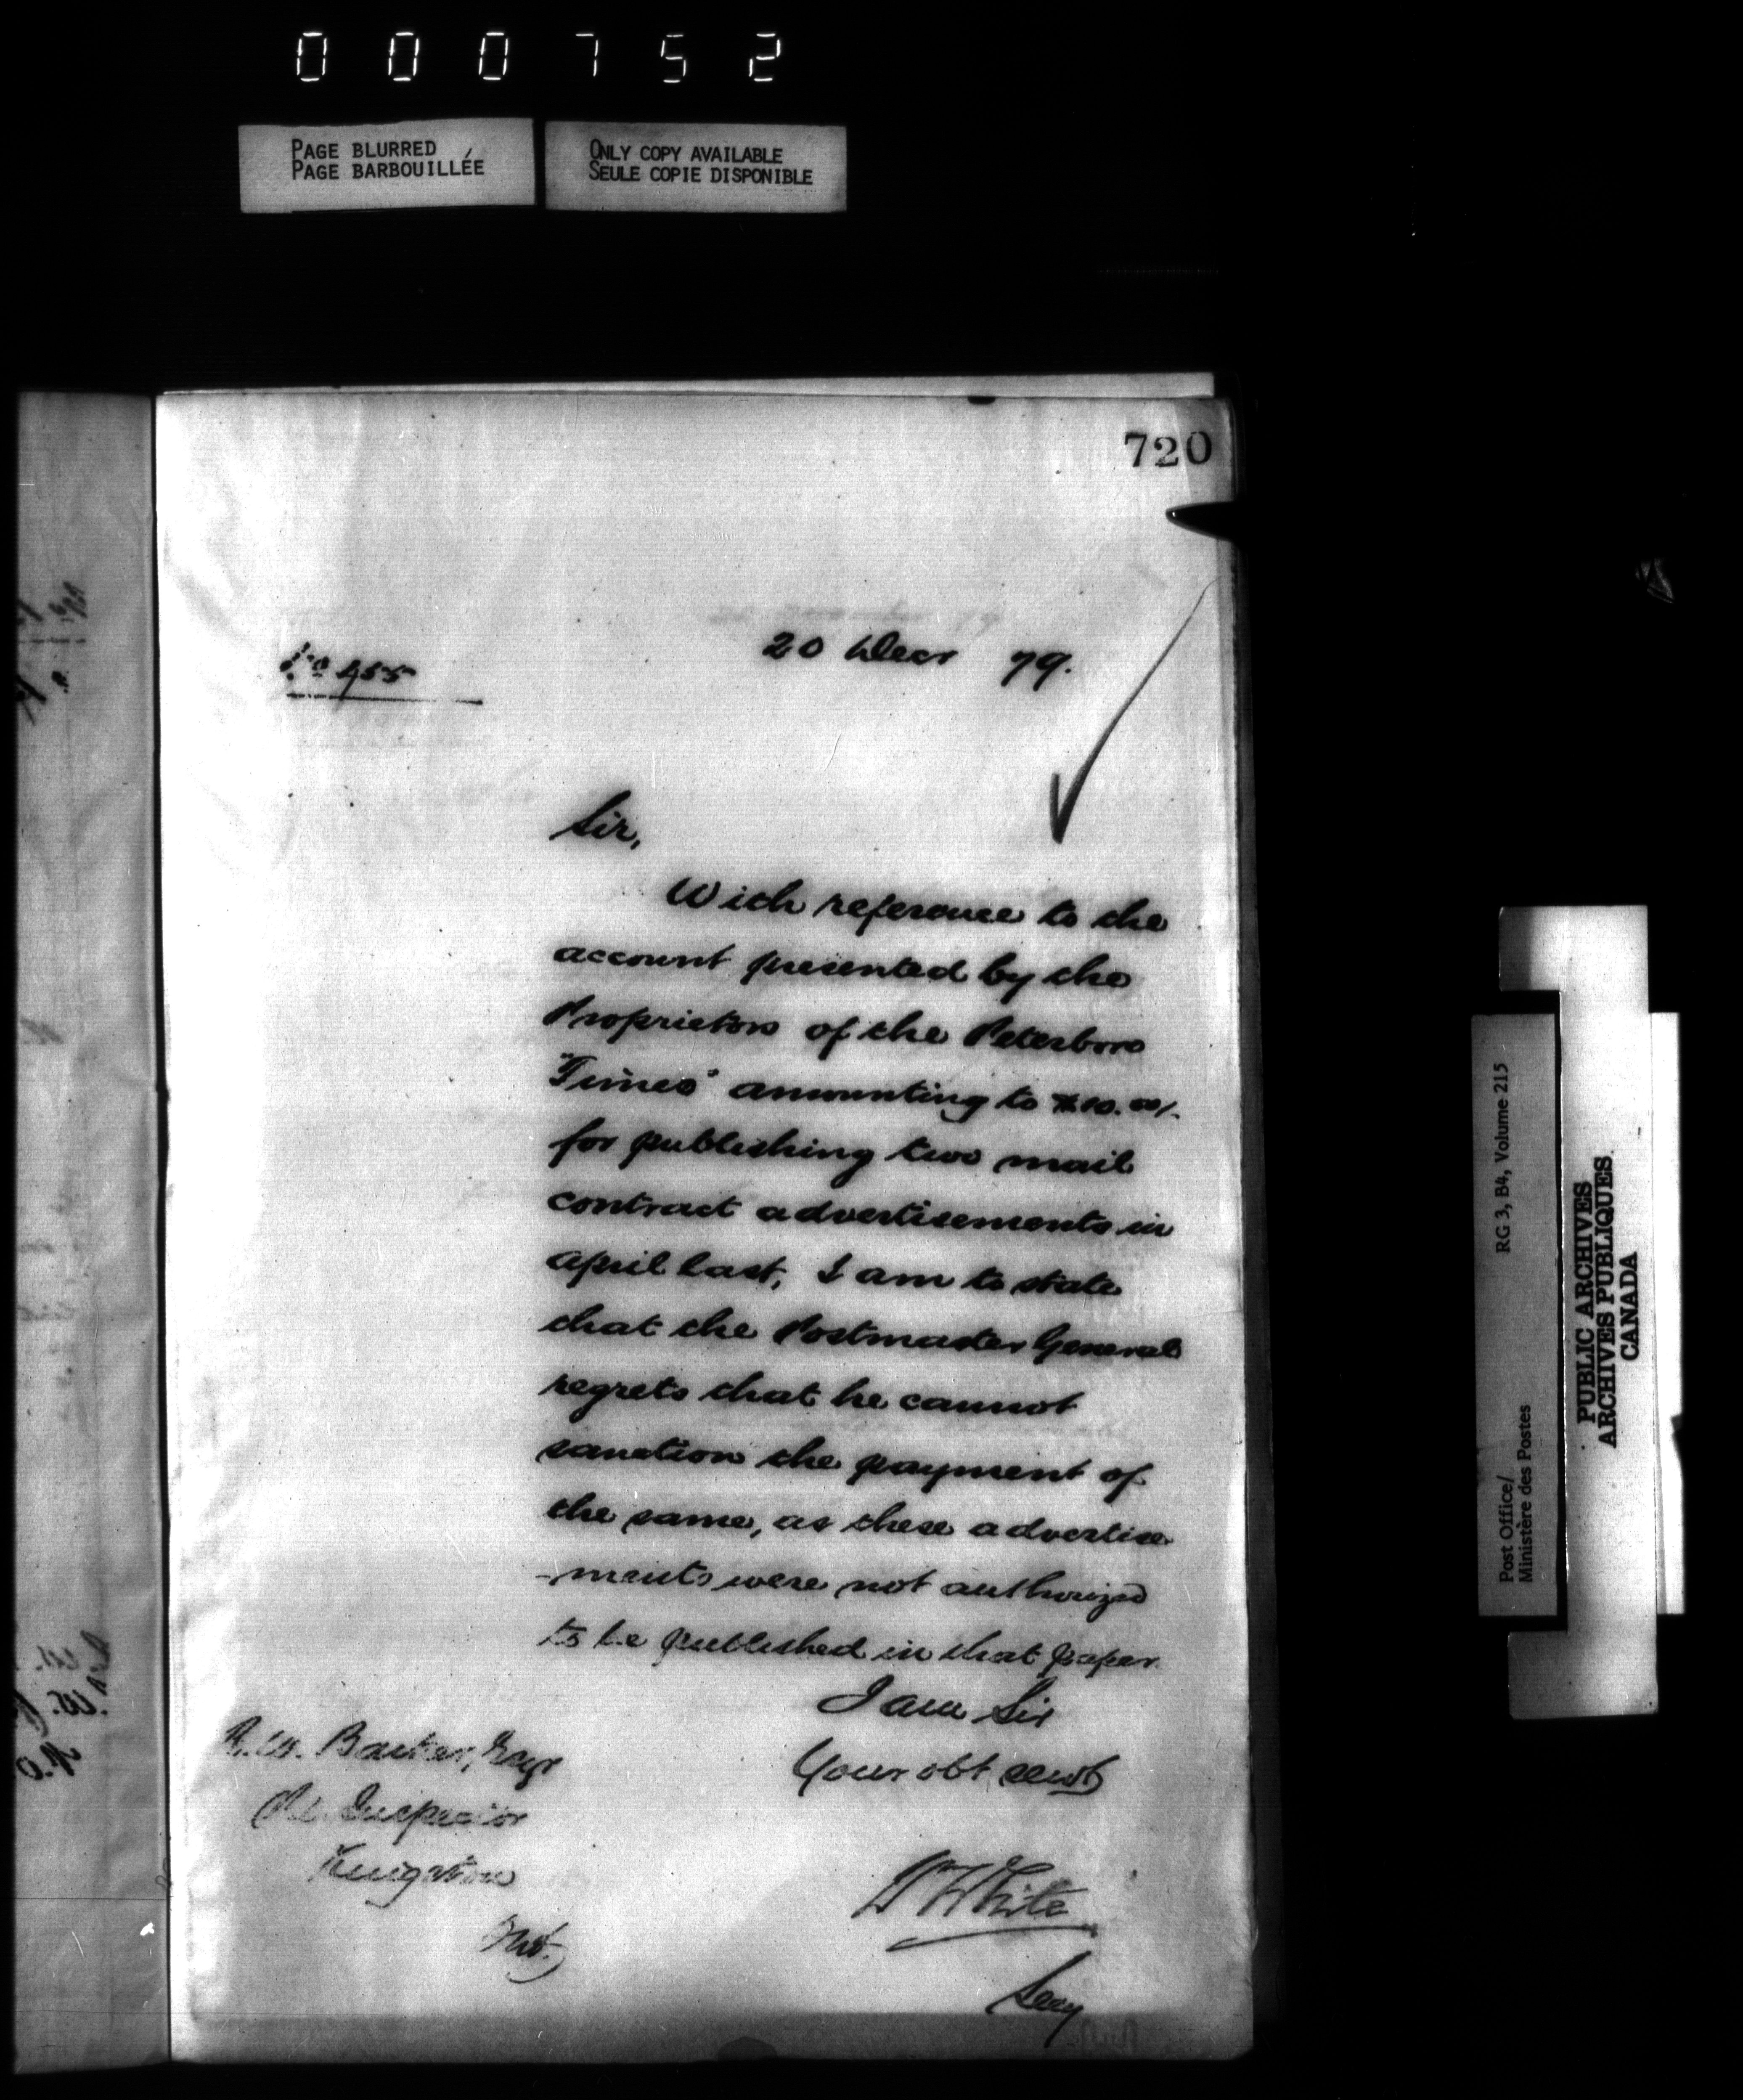 000752
PAGE BLURRED
PAGE BARBOUILLÉE
ONLY COPY AVAILABLE
SEULE COPIE DISPONIBLE
720
No 455
20 Decr 79.
Sir,
With reference to the
account presented by the
Proprietors of the Peterboro
"Times" amounting to $10.00/.
for publishing two mail
contract advertisements in
April last, I am to state
that the Postmaster General
regrets that he cannot
sanction the payment of
the same, as these advertise
-ments were not authorized
to be published in that paper.
I am Sir
Your obt servt
R.W. Barker, Esqr
P.O. Inspector
Kingston
Ont.
W White
Secy
RG 3, B4, Volume 215
Post Office/
Ministère des Postes
PUBLIC ARCHIVES
ARCHIVES PUBLIQUES
CANADA